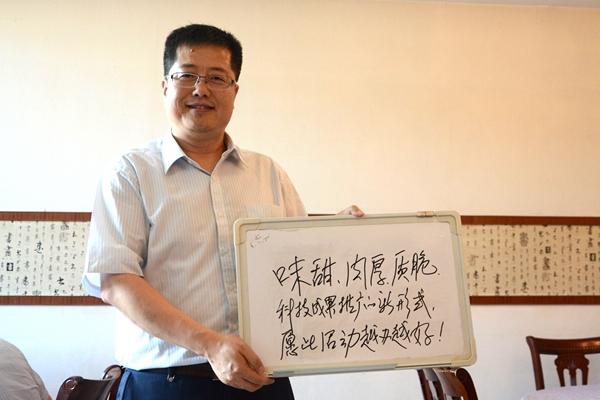 味甜、肉厚、质脆.
科技成果推广的新形式,
愿此活动越办越好!